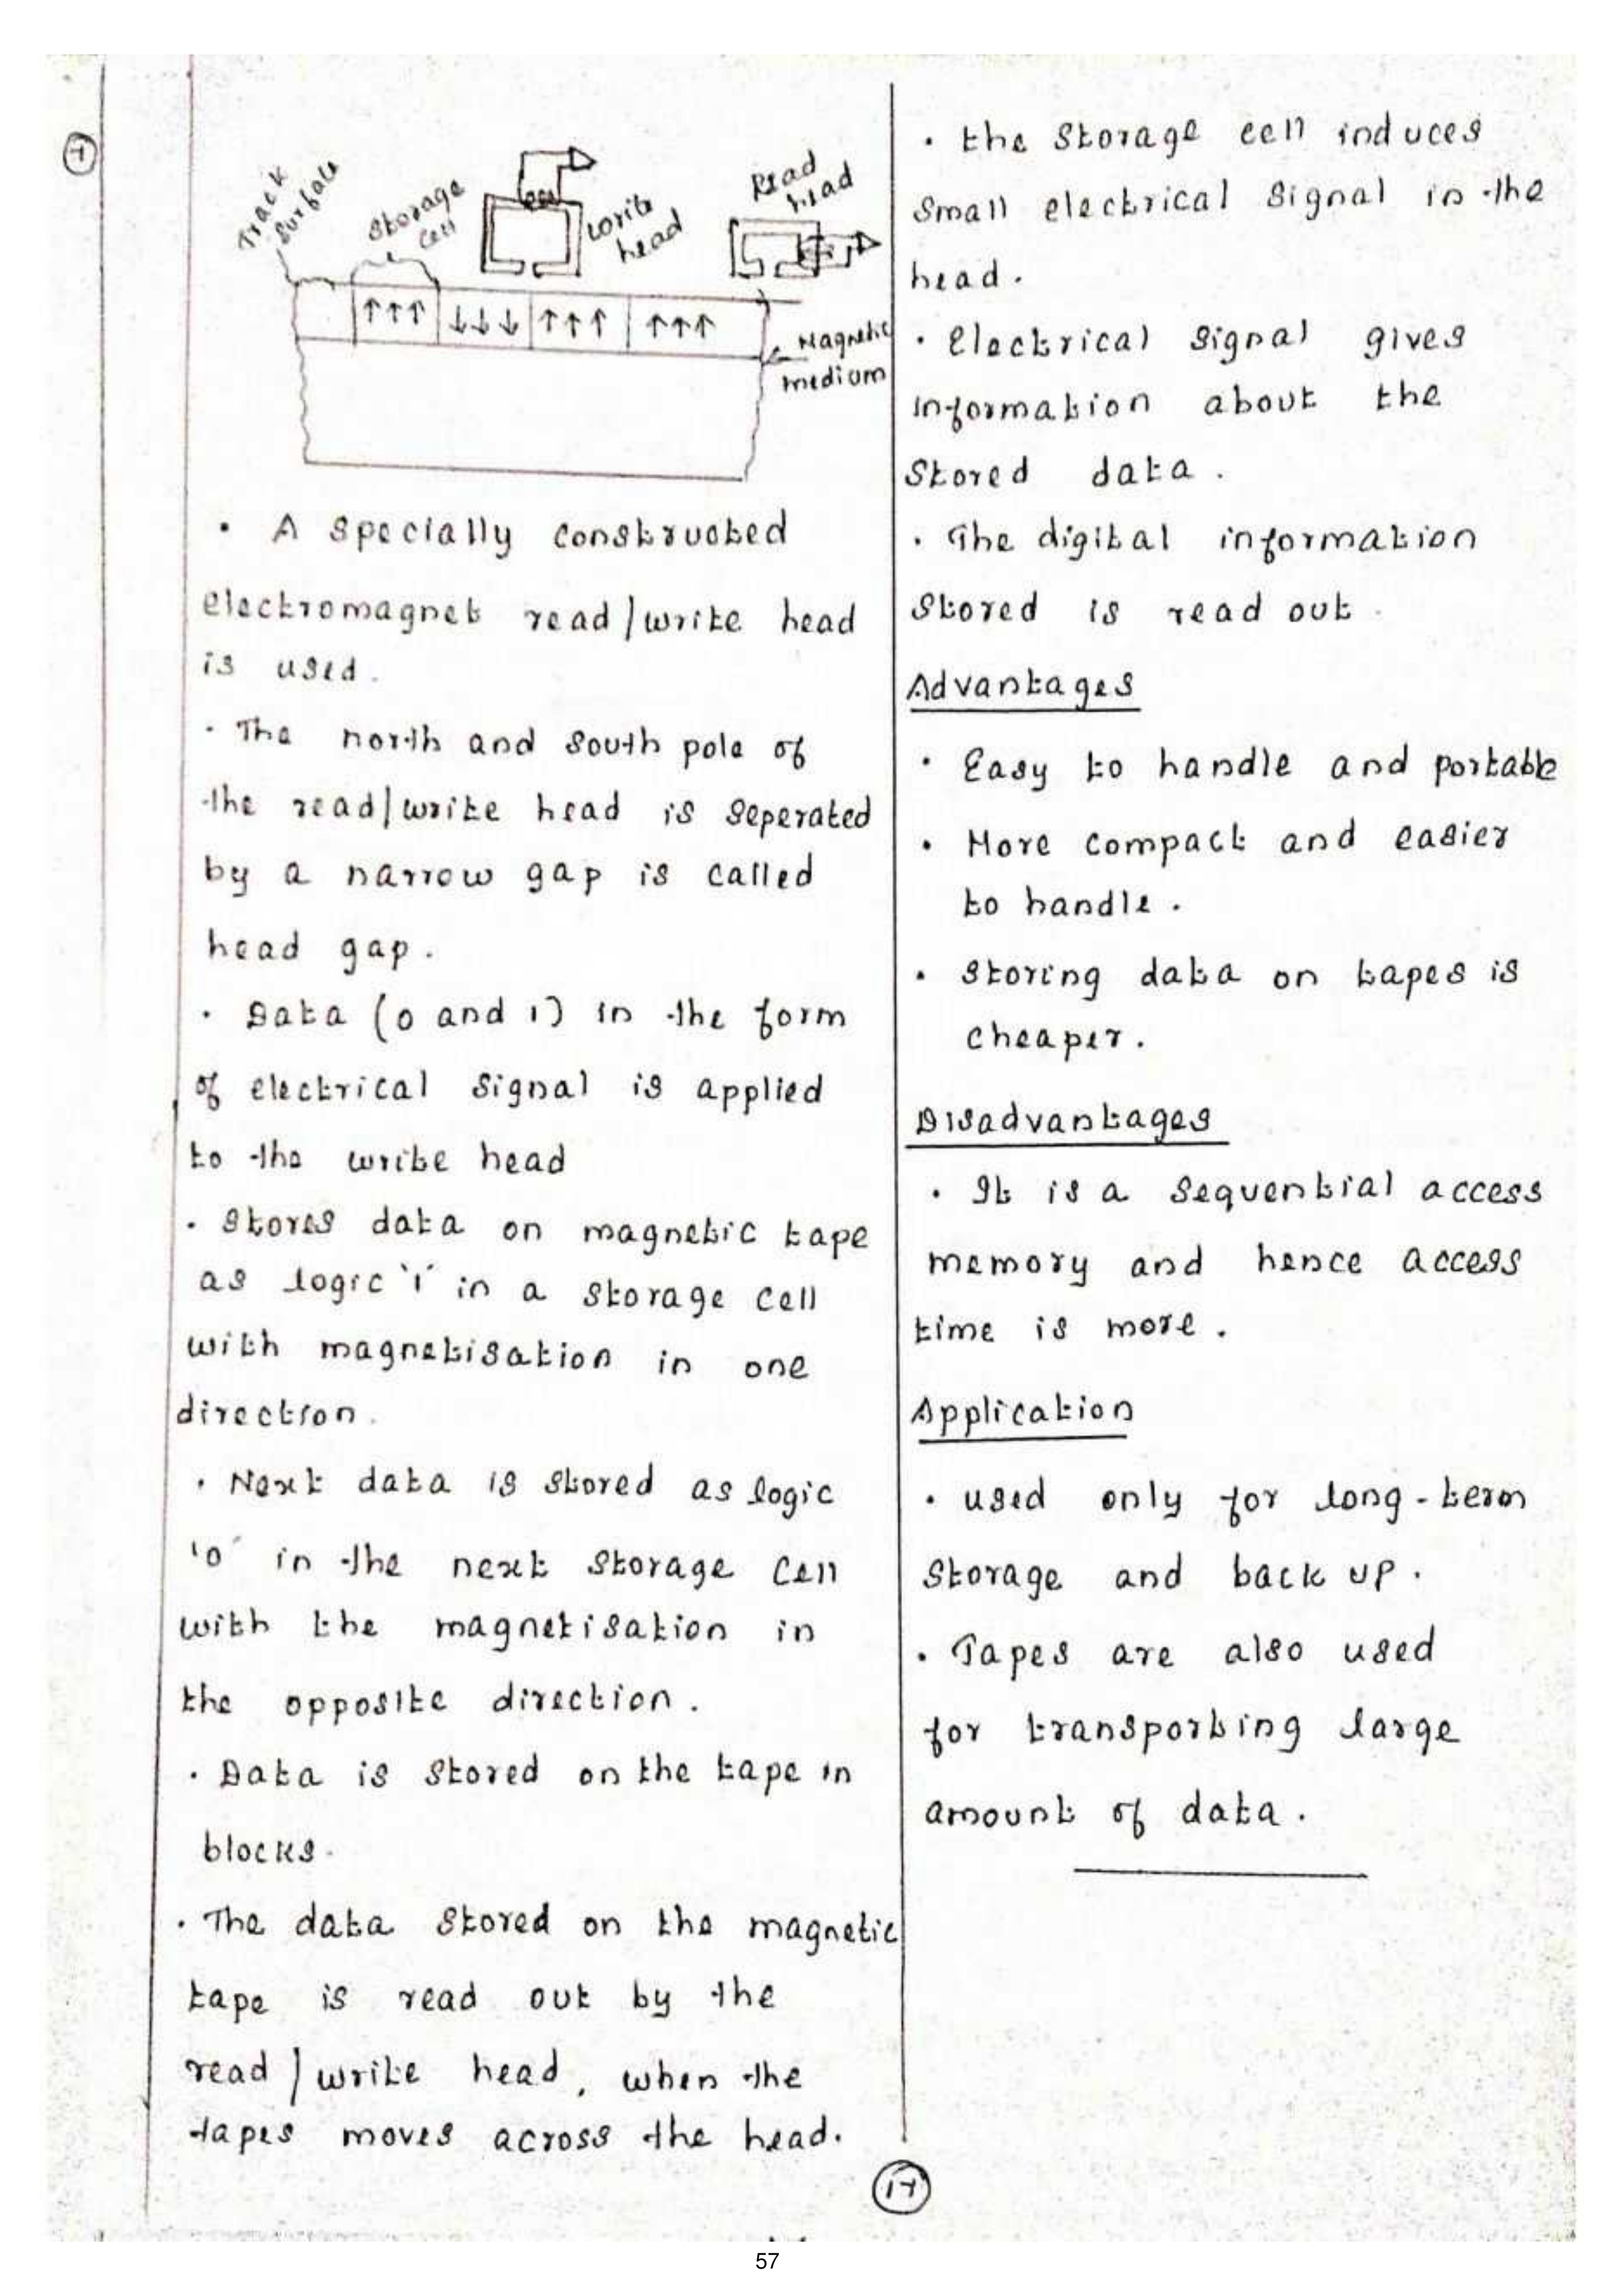 7
Track
Surface
Storage
Cell
write
head
Read
head
Magnetic
medium
• A specially constructed
electromagnet read/write head
is used.
• The north and south pole of
the read/write head is seperated
by a narrow gap is called
head gap.
• Data (0 and 1) in the form
of electrical signal is applied
to the write head
• Stores data on magnetic tape
as logic '1' in a storage cell
with magnetisation in one
direction.
• Next data is stored as logic
'0' in the next storage cell
with the magnetisation in
the opposite direction.
• Data is stored on the tape in
blocks.
• The data stored on the magnetic
tape is read out by the
read/write head, when the
tapes moves across the head.
• the storage cell induces
small electrical signal in the
head.
• Electrical signal gives
information about the
stored data.
• The digital information
stored is read out.
Advantages
• Easy to handle and portable
• More compact and easier
to handle.
• Storing data on tapes is
cheaper.
Disadvantages
• It is a sequential access
memory and hence access
time is more.
Application
• used only for long-term
storage and back up.
• Tapes are also used
for transporting large
amount of data.
17
57